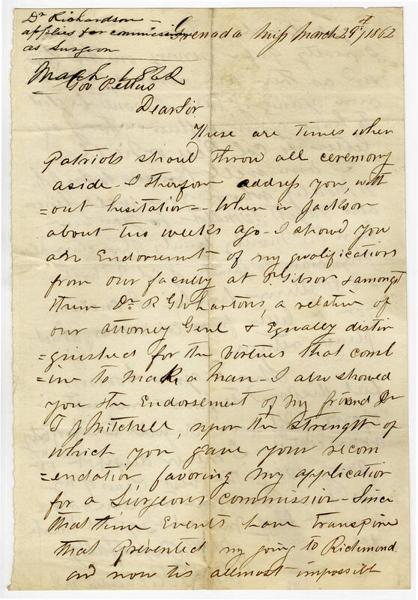 Dr Richardson -
applies for commission
as Surgeon
March 1862
Grenada Miss March 29th/1862
Gov Pettus
Dear Sir
These are times when
Patriots should throw all ceremony
aside - I therefore address you, with
=out hesitation - When in Jackson
about two weeks ago - I showd you
an Endorsment of my qualifications
from our faculty at P. Gibson & amongst
them Dr R G Whartons a relative of
our attorney Genl & Equally distin
=guished for the virtues that comb
=ine to make a Man - I also showed
you the Endorsement of my friend Dr
T J Mitchell, upon the strength of
which you gave your recom
=endation, favoring my application
for a Surgeons commission - Since
that time Events have transpire
that prevented my going to Richmond
and now tis allmost impossible